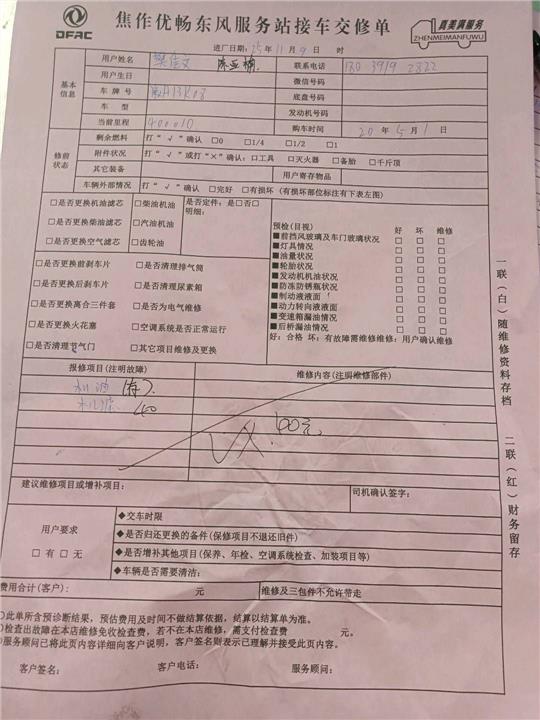 DFAC
焦作优畅东风服务站接车交修单
真美满服务
ZHENMEIMANFUWU
进厂日期:25年11月9日 时
基本信息
用户姓名 陈亚楠 联系电话
用户生日 微信号码
车牌号 底盘号码
车型 发动机号码
当前里程 400010 购车时间 20年5月1日
修前状态
剩余燃料 打“√”确认 □0 □1/4 □1/2 □1
附件状况 打“√”或打“×”确认:□工具 □灭火器 □备胎 □千斤顶
其它装备 用户寄存物品
车辆外部情况 打“√”确认 □完好 □有损坏(有损坏部位标注有下表左图)
□是否更换机油滤芯 □柴油机油 是否定件:是□否□
□是否更换柴油滤芯 □汽油机油 明细:
□是否更换空气滤芯 □齿轮油
□是否更换前刹车片 □是否清理排气筒
□是否更换后刹车片 □是否清理尿素箱
□是否更换离合三件套 □是否为电气维修
□是否更换火花塞 □空调系统是否正常运行
□是否清理节气门 □其它项目维修及更换
预检(目视) 好 坏 维修
■前挡风玻璃及车门玻璃状况 □ □ □
■灯具情况 □ □ □
■油量状况 □ □ □
■轮胎状况 □ □ □
■发动机机油状况 □ □ □
■防冻防锈瓶状况 □ □ □
■制动液液面 □ □ □
■动力转向液液面 □ □ □
■变速箱漏油情况 □ □ □
■后桥漏油情况 □ □ □
好:合格 坏:有故障需维修维修:用户确认维修
报修项目(注明故障) 维修内容(注明维修部件)
机油
机滤 40
40元
建议维修项目或增补项目: 司机确认签字:
用户要求
□有 □无
◆交车时限
◆是否归还更换的备件(保修项目不退还旧件)
◆是否增补其他项目(保养、年检、空调系统检查、加装项目等)
◆车辆是否需要清洁:
费用合计(客户): 元 维修及三包件不允许带走
此单所含预诊断结果,预估费用及时间不做结算依据,结算以结算单为准。
检查出故障在本店维修免收检查费,若不在本店维修,需支付检查费 元。
服务顾问已将此页内容详细向客户说明,客户签名则表示已理解并接受此页内容。
客户签名: 客户电话: 服务顾问:
一联(白)随维修资料存档
二联(红)财务留存